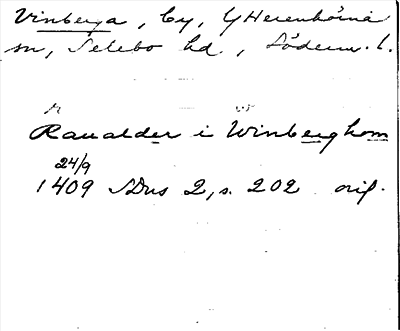 Vinberga, by, Ytterenhörna
sn, Selebo hd, Söderm. l.
Raualder i Winberghom
24/9
1409 SDns 2, s. 202 orig.